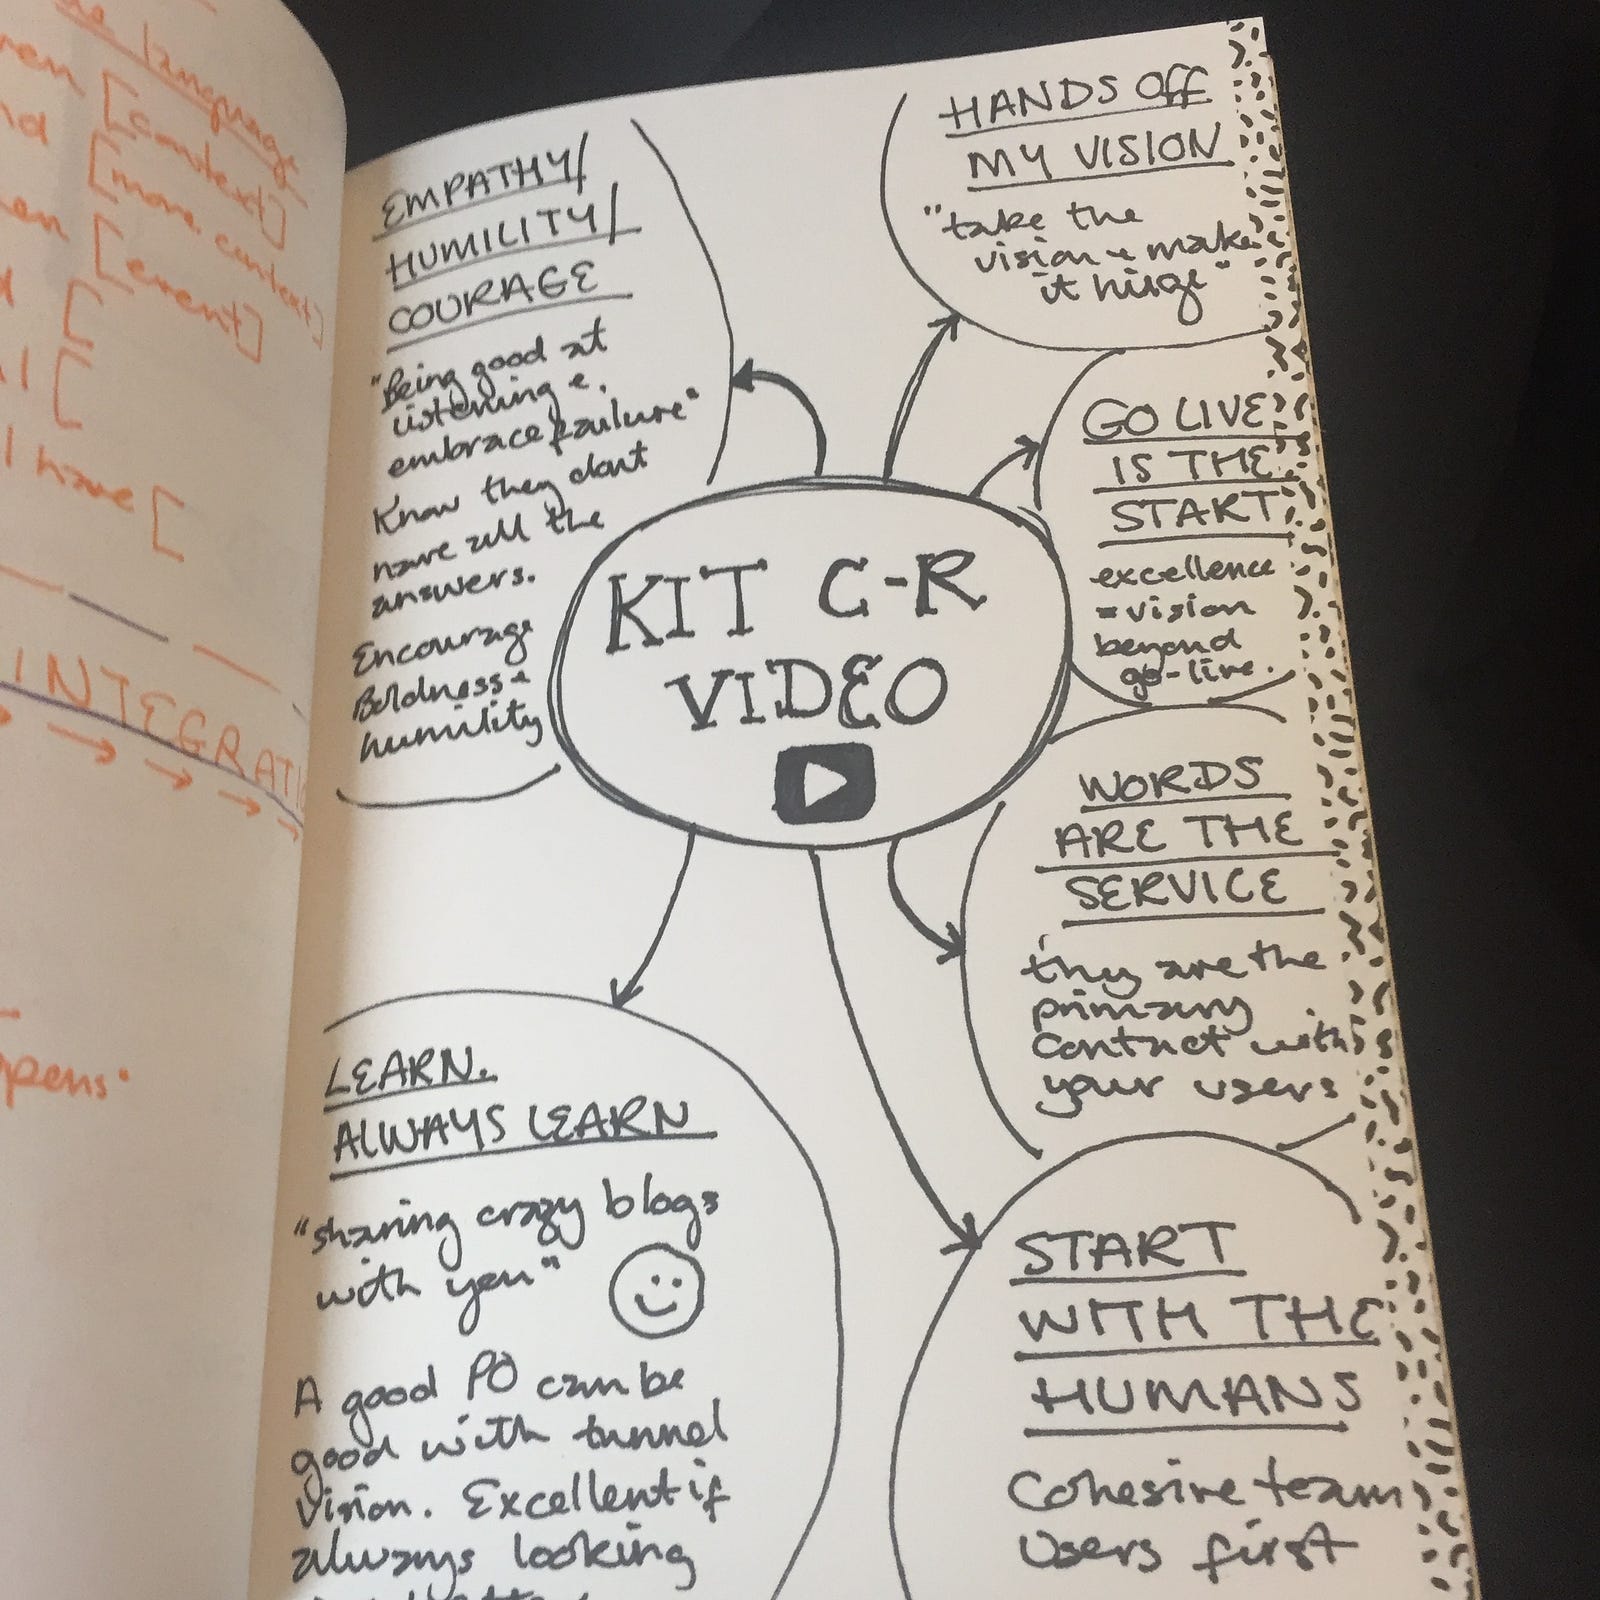 language
[context]
[more context]
[event]
[
[
I have [
INTEGRATI
EMPATHY/
HUMILITY/
COURAGE
"Being good at
listening &
embrace failure"
Know they dont
have all the
answers.
Encourage
Boldness +
humility
HANDS OFF
MY VISION
"take the
vision + make
it huge"
GO LIVE
IS THE
START
excellence
= vision
beyond
go-live.
KIT C-R
VIDEO
WORDS
ARE THE
SERVICE
they are the
primary
contact with
your users
LEARN.
ALWAYS LEARN
"sharing crazy blogs
with you"
A good PO can be
good with tunnel
vision. Excellent if
always looking
START
WITH THE
HUMANS
Cohesive team
Users first